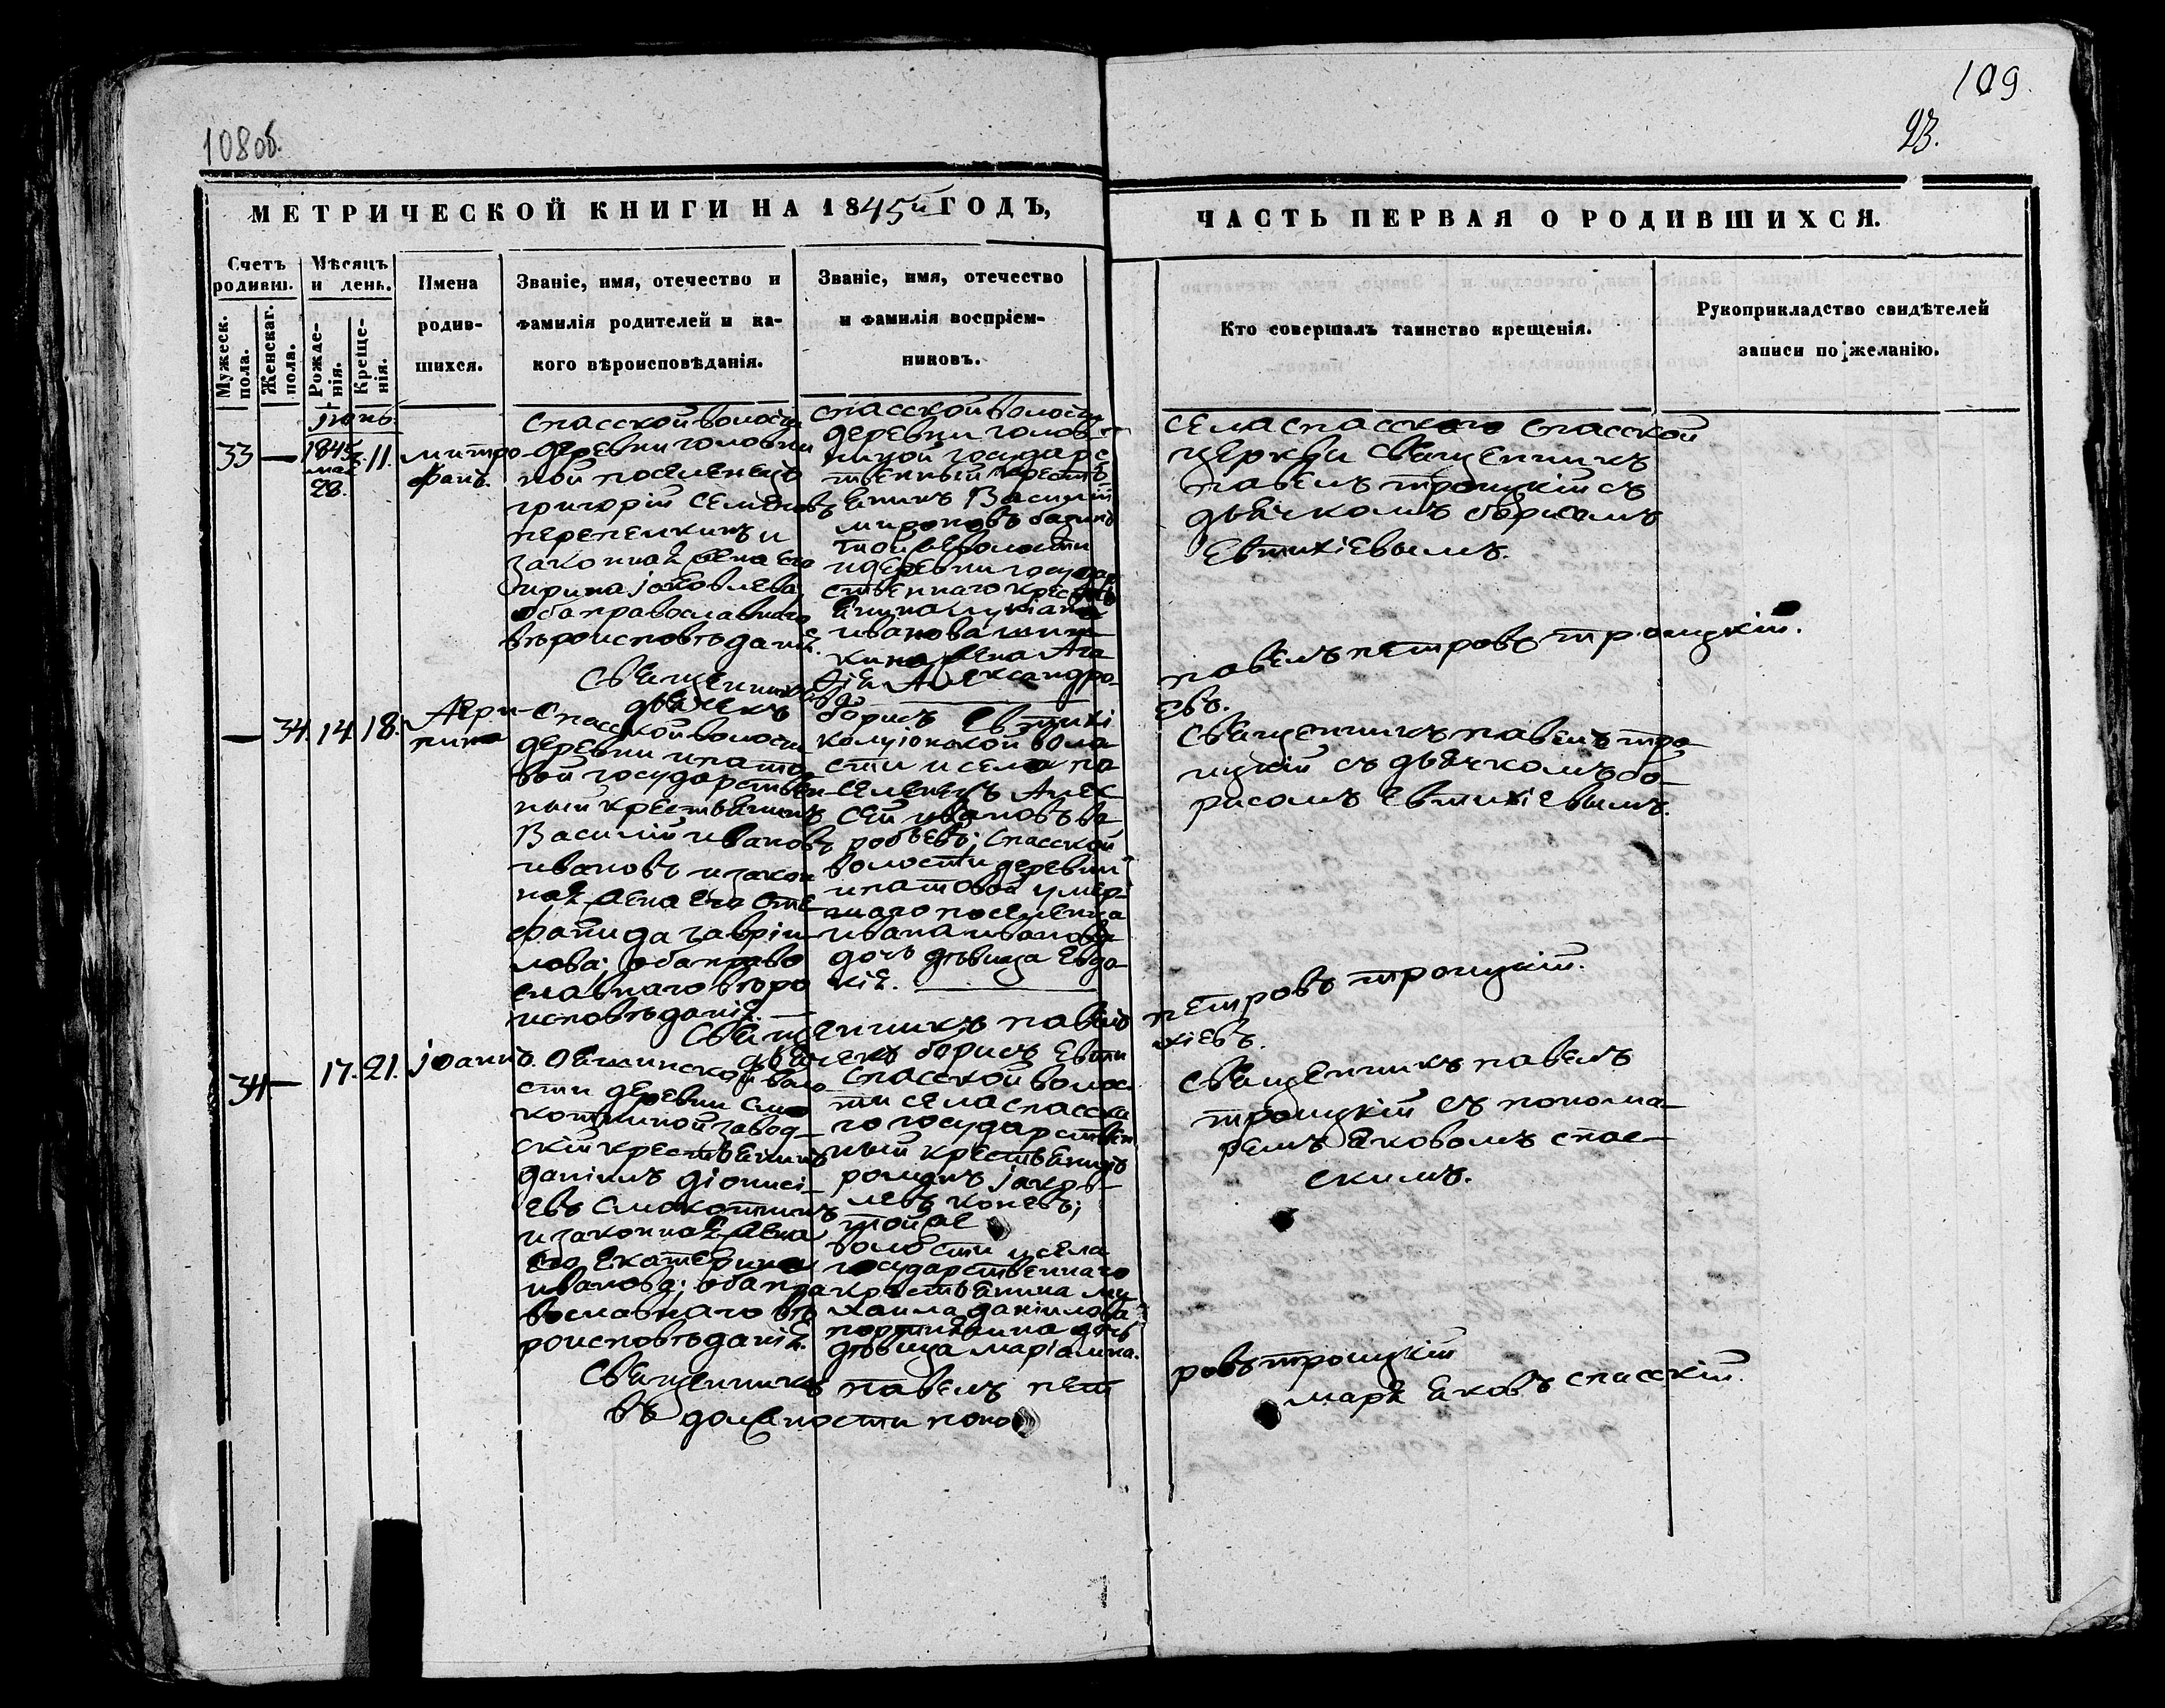 108 об.
109.
23.
МЕТРИЧЕСКОЙ КНИГИ НА 1845й ГОДЪ,
ЧАСТЬ ПЕРВАЯ О РОДИВШИХСЯ.
Счетъ родивш.
Мужеск. пола.
Женскаг. пола.
Мѣсяцъ и день.
Рожденія.
Крещенія.
Имена
родив-
шихся.
Званіе, имя, отечество и
фамилія родителей и ка-
кого вѣроисповѣданія.
Званіе, имя, отечество
и фамилія воспріем-
никовъ.
Кто совершалъ таинство крещенія.
Рукоприкладство свидѣтелей
записи по желанію.
іюнь
33 —
1845
мая
28.
11.
митро
фанъ.
спасской волости
деревни головни
ной поселенецъ
григорій семеновъ
перепелкинъ и
законная жена его
ирина іаковлева
оба православнаго
вѣроисповѣданія.
спасской волости
деревни голов
ниной государс
твенный крестья
янинъ Василій
мироновъ
той же волости
и деревни государ
ственнаго крестья
янина лукіана
иванова
жена Ага
ѳія Александро
ва.
села спасскаго спасской
церкви священникъ
павелъ троицкій съ
дьячкомъ борисомъ
Евтихіевымъ.
Священникъ
павелъ петровъ троицкій.
дьячекъ борисъ Евтихі
евъ.
— 34. 14. 18.
Агри
пина
Спасской волости
деревни ипато
вой государствен
ный крестьянинъ
Василій ивановъ
ивановъ и закон
ная жена его Сте
фанида гавріи
лова; оба право
славнаго вѣро
исповѣданія. —
колуіонской воло
сти и села по
селенецъ Алек
сей ивановъ ва
робьевъ; спасской
волости деревни
ипатовой умер
шаго поселенца
ивана иванова
дочь дѣвица Евдо
кія.
Священникъ павелъ тро
ицкій съ дьячкомъ бо
рисомъ Евтихіевымъ.
Священникъ павелъ
петровъ троицкій.
дьячекъ борисъ Евти
хіевъ.
34 — 17. 21. іоаннъ.
Ояшинской воло
сти деревни смо
котиной завод
скій крестьянинъ
даніилъ діонисі
евъ Смокотинъ
и законная жена
его Екатерина
иванова; оба пра
вославнаго вѣ
роисповѣданія.
спасской волос
ти села спасска
го государствен
ный крестьянинъ
романъ іаков
левъ коневъ;
той же
волости и села
государственнаго
крестьянина ми
хаила даніилова
портнягина дочь
дѣвица маріамна.
Священникъ павелъ
троицкій съ понома
ремъ яковомъ спас
скимъ.
Священникъ павелъ пет
ровъ троицкій
въ должности поно
марь яковъ спасскій.